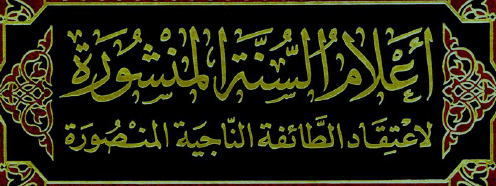 أَعْلَامُ السُّنَّةِ الْمَنْشُورَة
لاعْتِقَادِ الطَّائفة النَّاجيَة المَنْصُورَة